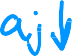 aj↓